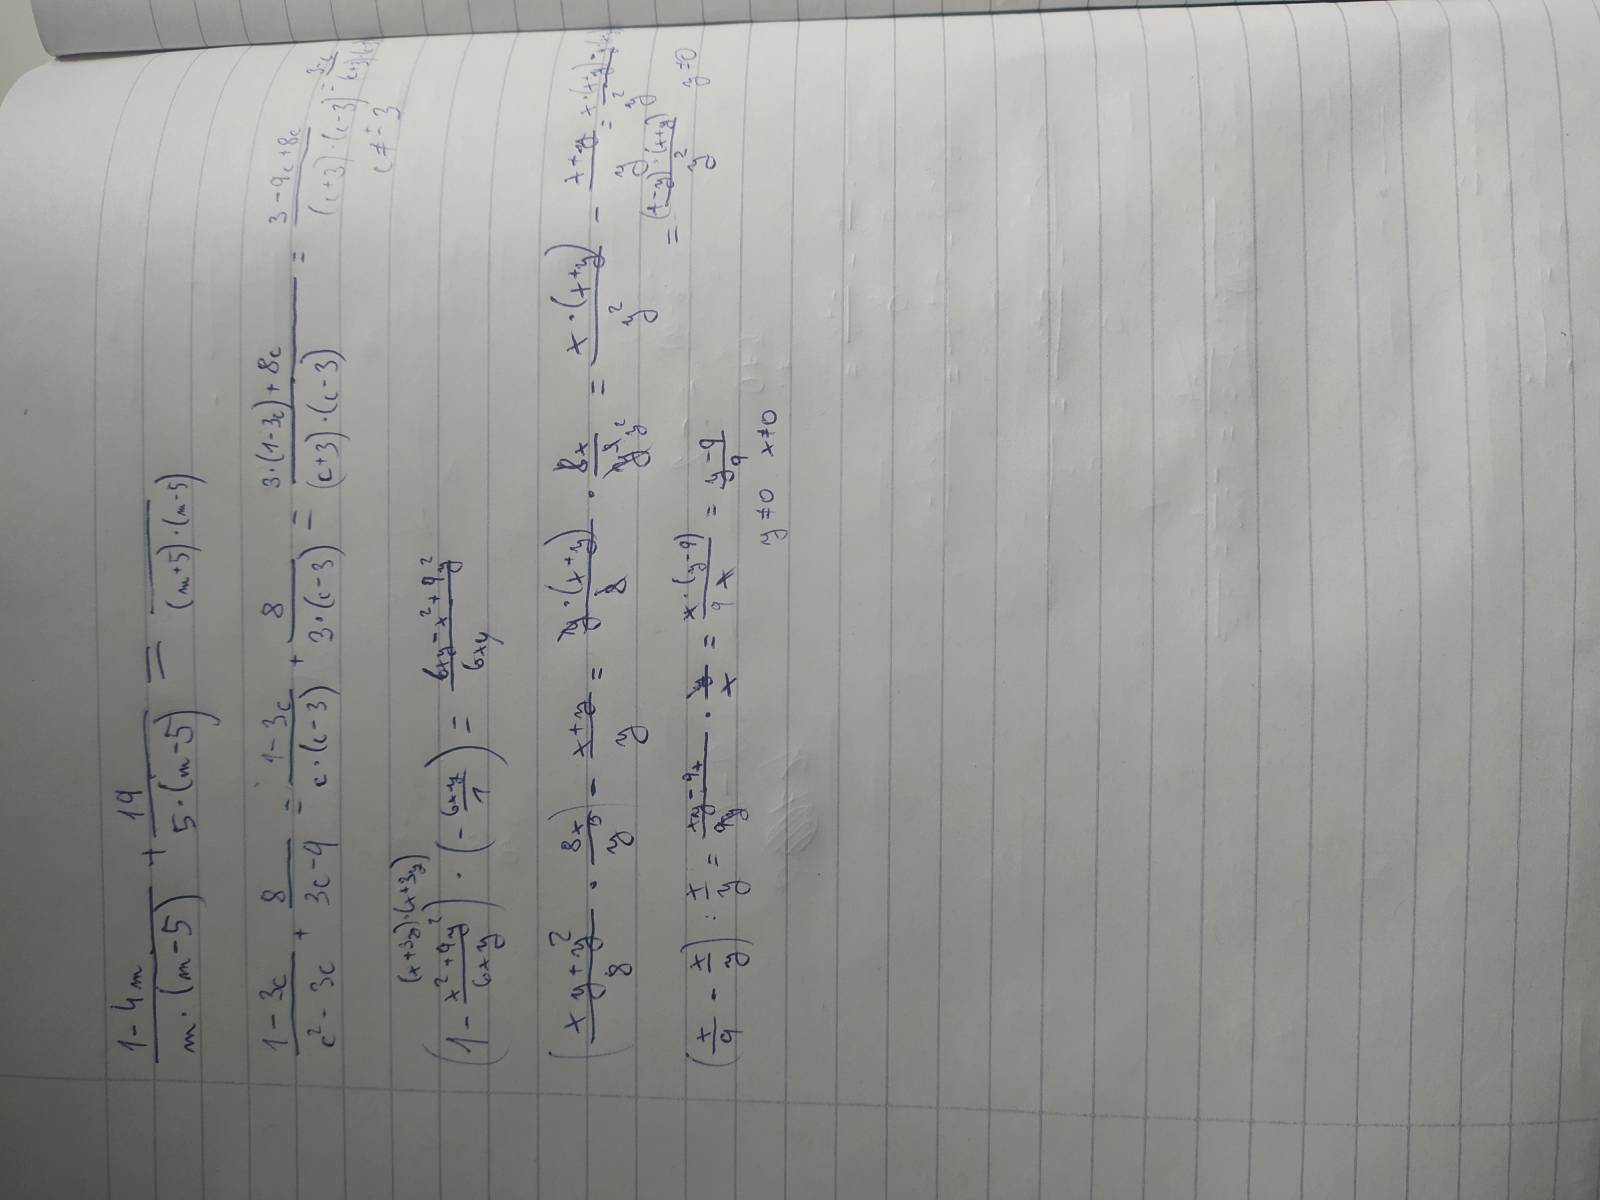 (1-4m)/(m·(m-5)) + 19/(5·(m-5)) = /((m+5)·(m-5))
(1-3c)/(c²-3c) + 8/(3c-9) = (1-3c)/(c·(c-3)) + 8/(3·(c-3)) = (3·(1-3c)+8c)/((c+3)·(c-3)) = (3-9c+8c)/((c+3)·(c-3)) = (3-c)/((c+3)·(c-3))
c≠±3
(x+3y)·(x+3y)
(1-(x²+9y²)/(6xy))·(-6xy/1) = (6xy-x²+9y²)/(6xy)
((xy+y²)/8 · 8x/y) - (x+y)/y = (y·(x+y))/8 · 8x/y³ y² = (x·(x+y))/y² - (x+y)/y = (x·(x+y)-y(x+y))/y²
= ((x-y)·(x+y))/y² y≠0
(x/9 - x/y) : x/y = (xy-9x)/(9y) · y/x = (x·(y-9))/(9x) = (y-9)/9
y≠0 x≠0